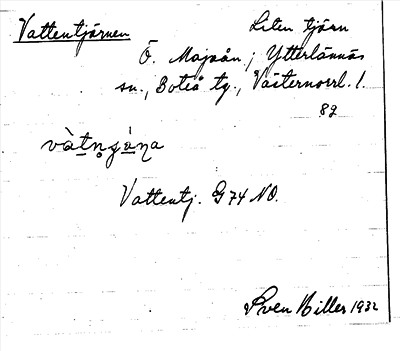 Vattentjärnen
Liten tjärn
Ö. Majaån; Ytterlännäs
sn., Boteå tg., Västernorrl. l.
82
Vattentj. G 74 NO.
Sven Biller 1932